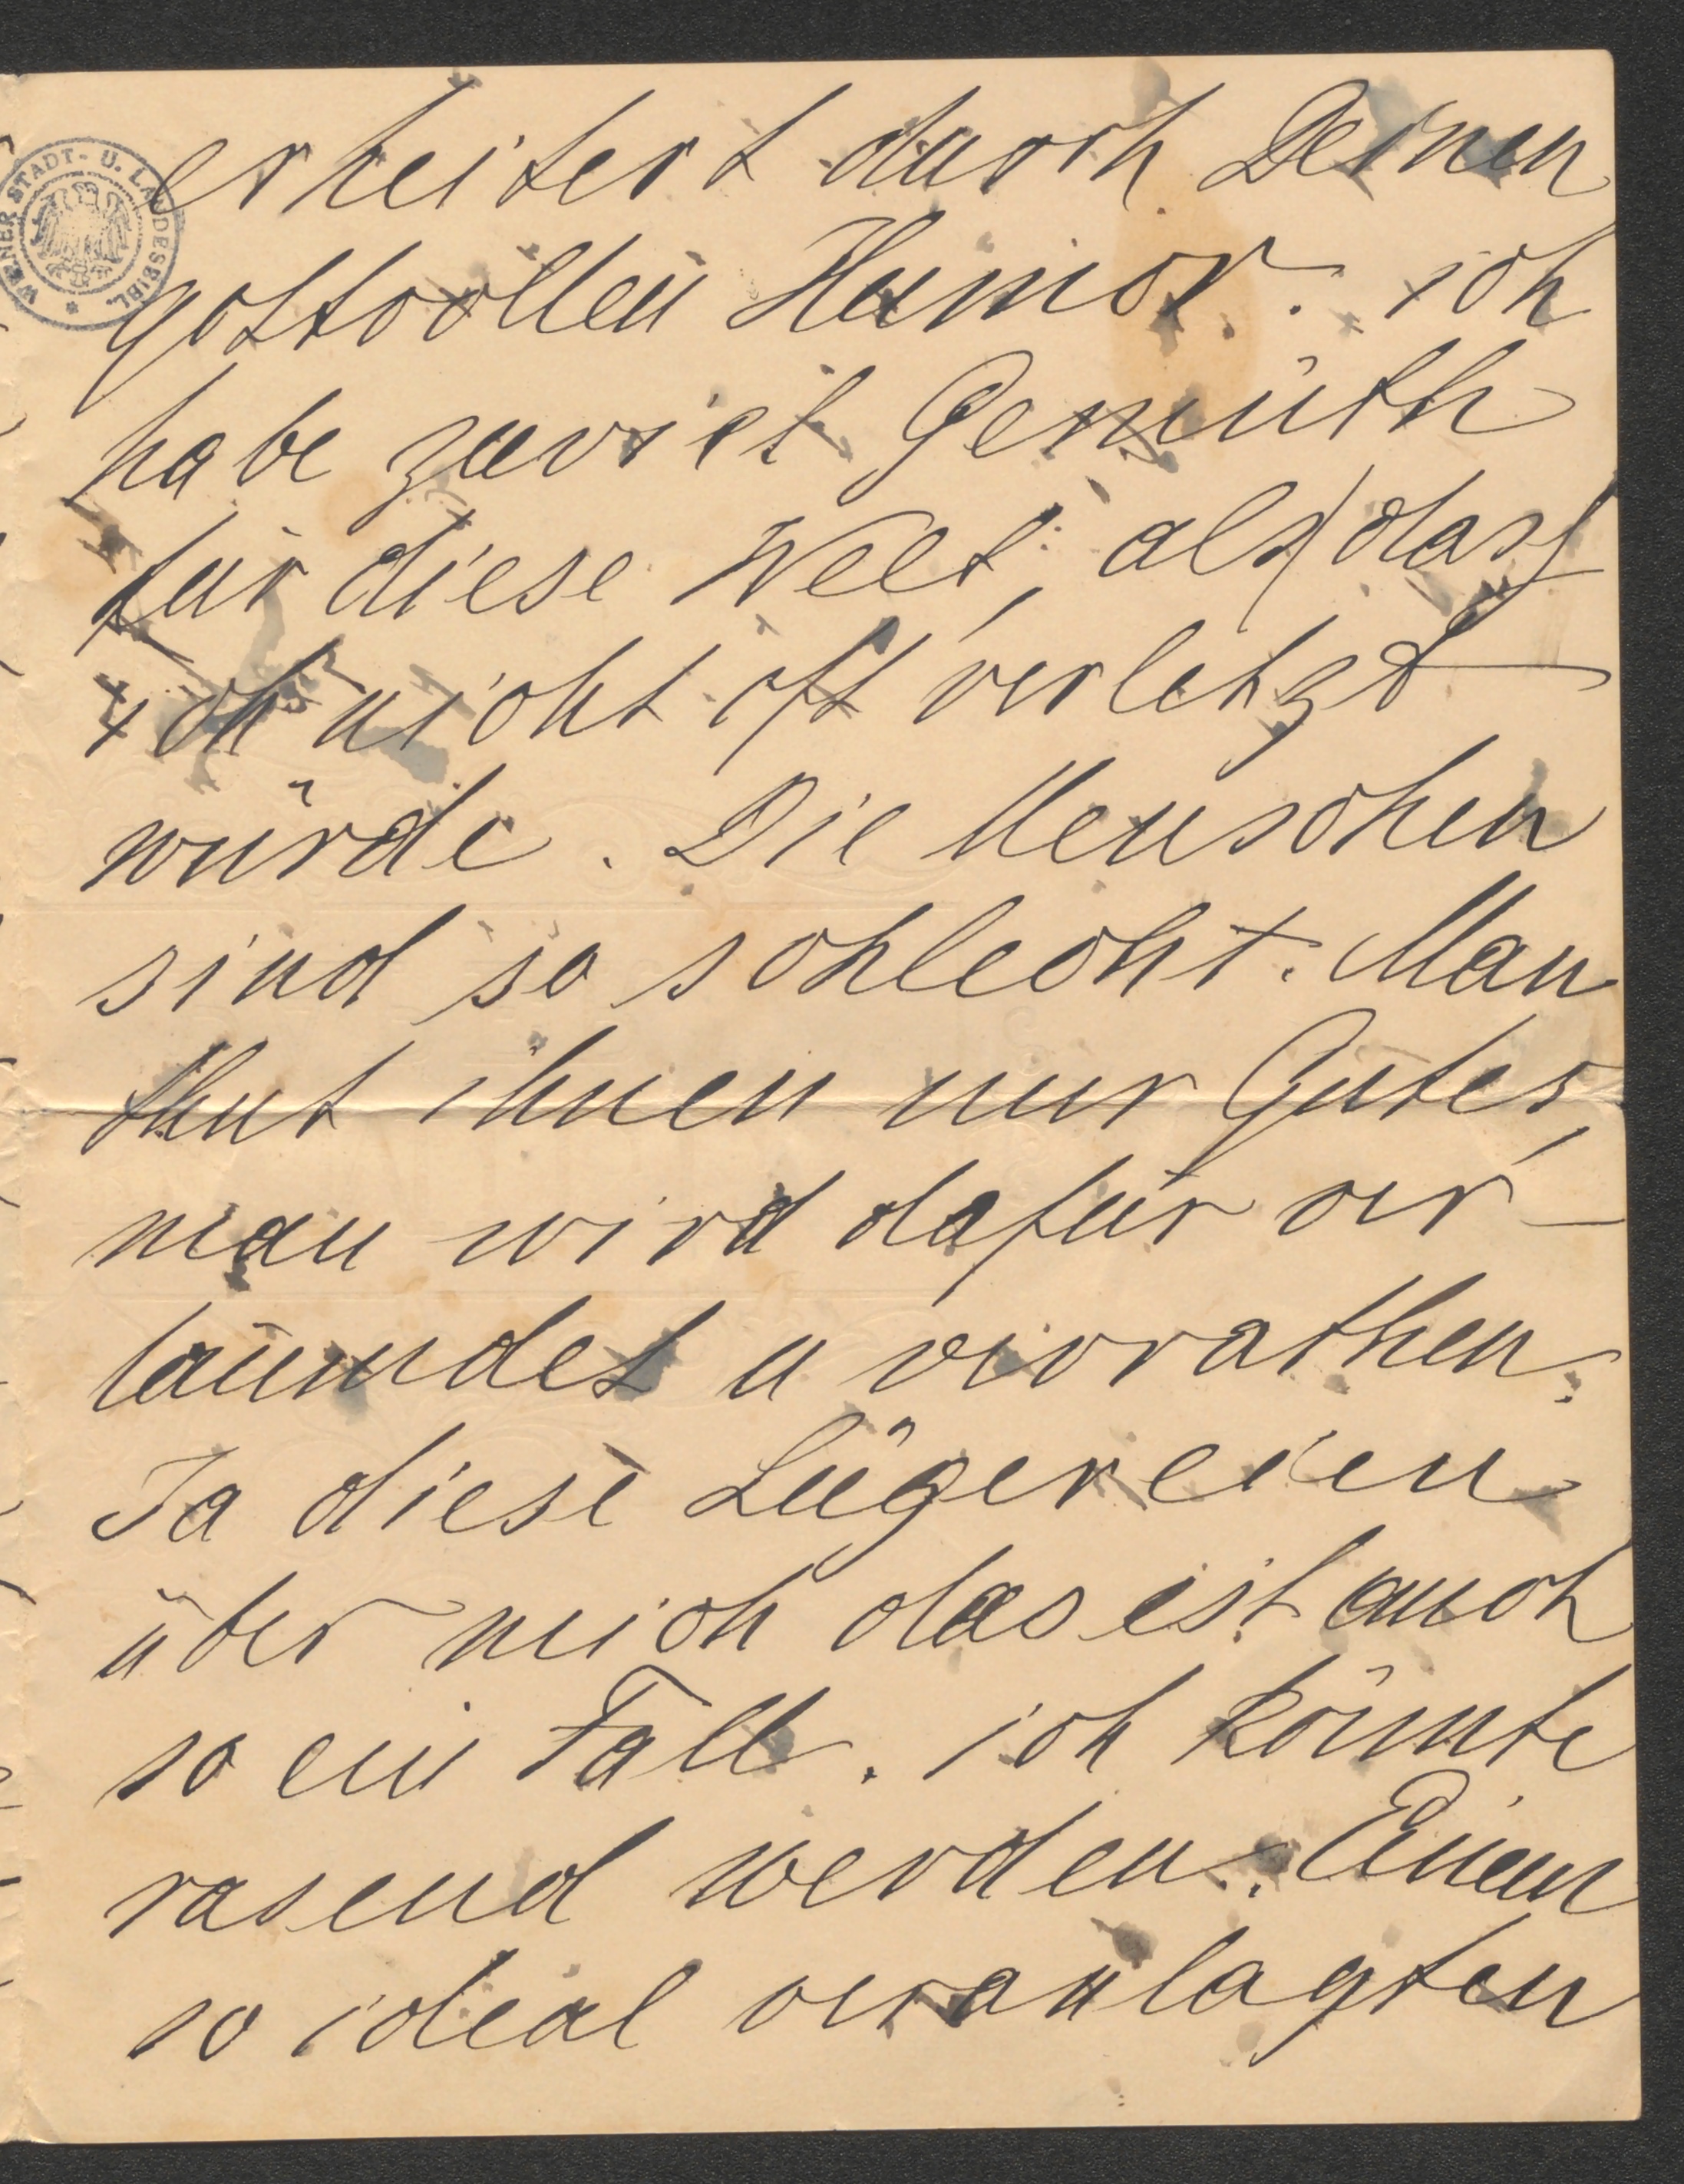 WIENER STADT- U. LANDESBIBL.
erheitert durch Deinen
gottvollen Humor. ich
habe zuviel Gemüth
für diese Welt, als das
ich nicht oft verletzt
würde. Die Menschen
sind so schlecht. Man
thut ihnen nur Gutes,
man wird dafür ver-
läumdet u verrathen.
Ja diese Lügereien
über mich das ist auch
so ein Fall. ich könnte
rasend werden. Einen
so ideal veranlagten